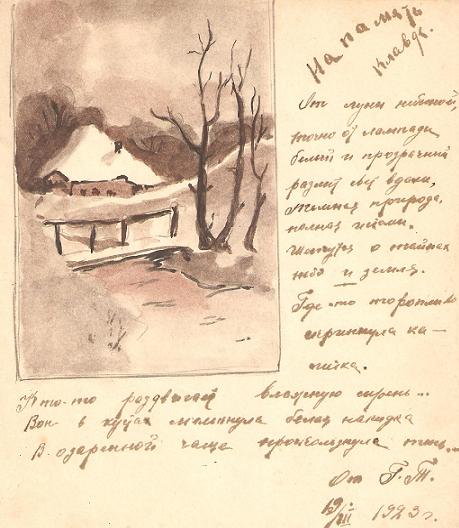 На память
Клавде.
От луны небесной,
точно от лампады
белый и прозрачный
разлит свет вдали,
Темная природа,
полная
Шепчут о тайнах
неб и земля.
Где-то торопливо
скрипнула ка-
литка.
Кто-то раздвигает влажную сирень...
Вон в кущах мелькнула белая накидка
В озаренной чаще проскользнула тень...
От Г. Т.
19/III 1923 г.